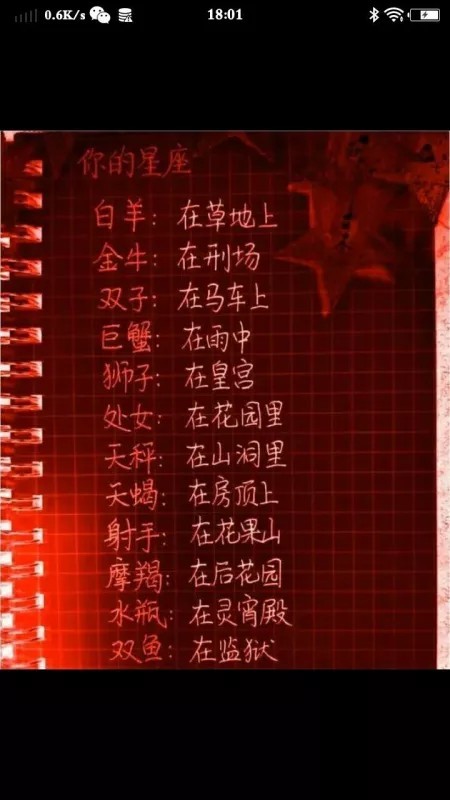 0.6K/s 18:01
你的星座
白羊：在草地上
金牛：在刑场
双子：在马车上
巨蟹：在雨中
狮子：在皇宫
处女：在花园里
天秤：在山洞里
天蝎：在房顶上
射手：在花果山
摩羯：在后花园
水瓶：在灵宵殿
双鱼：在监狱